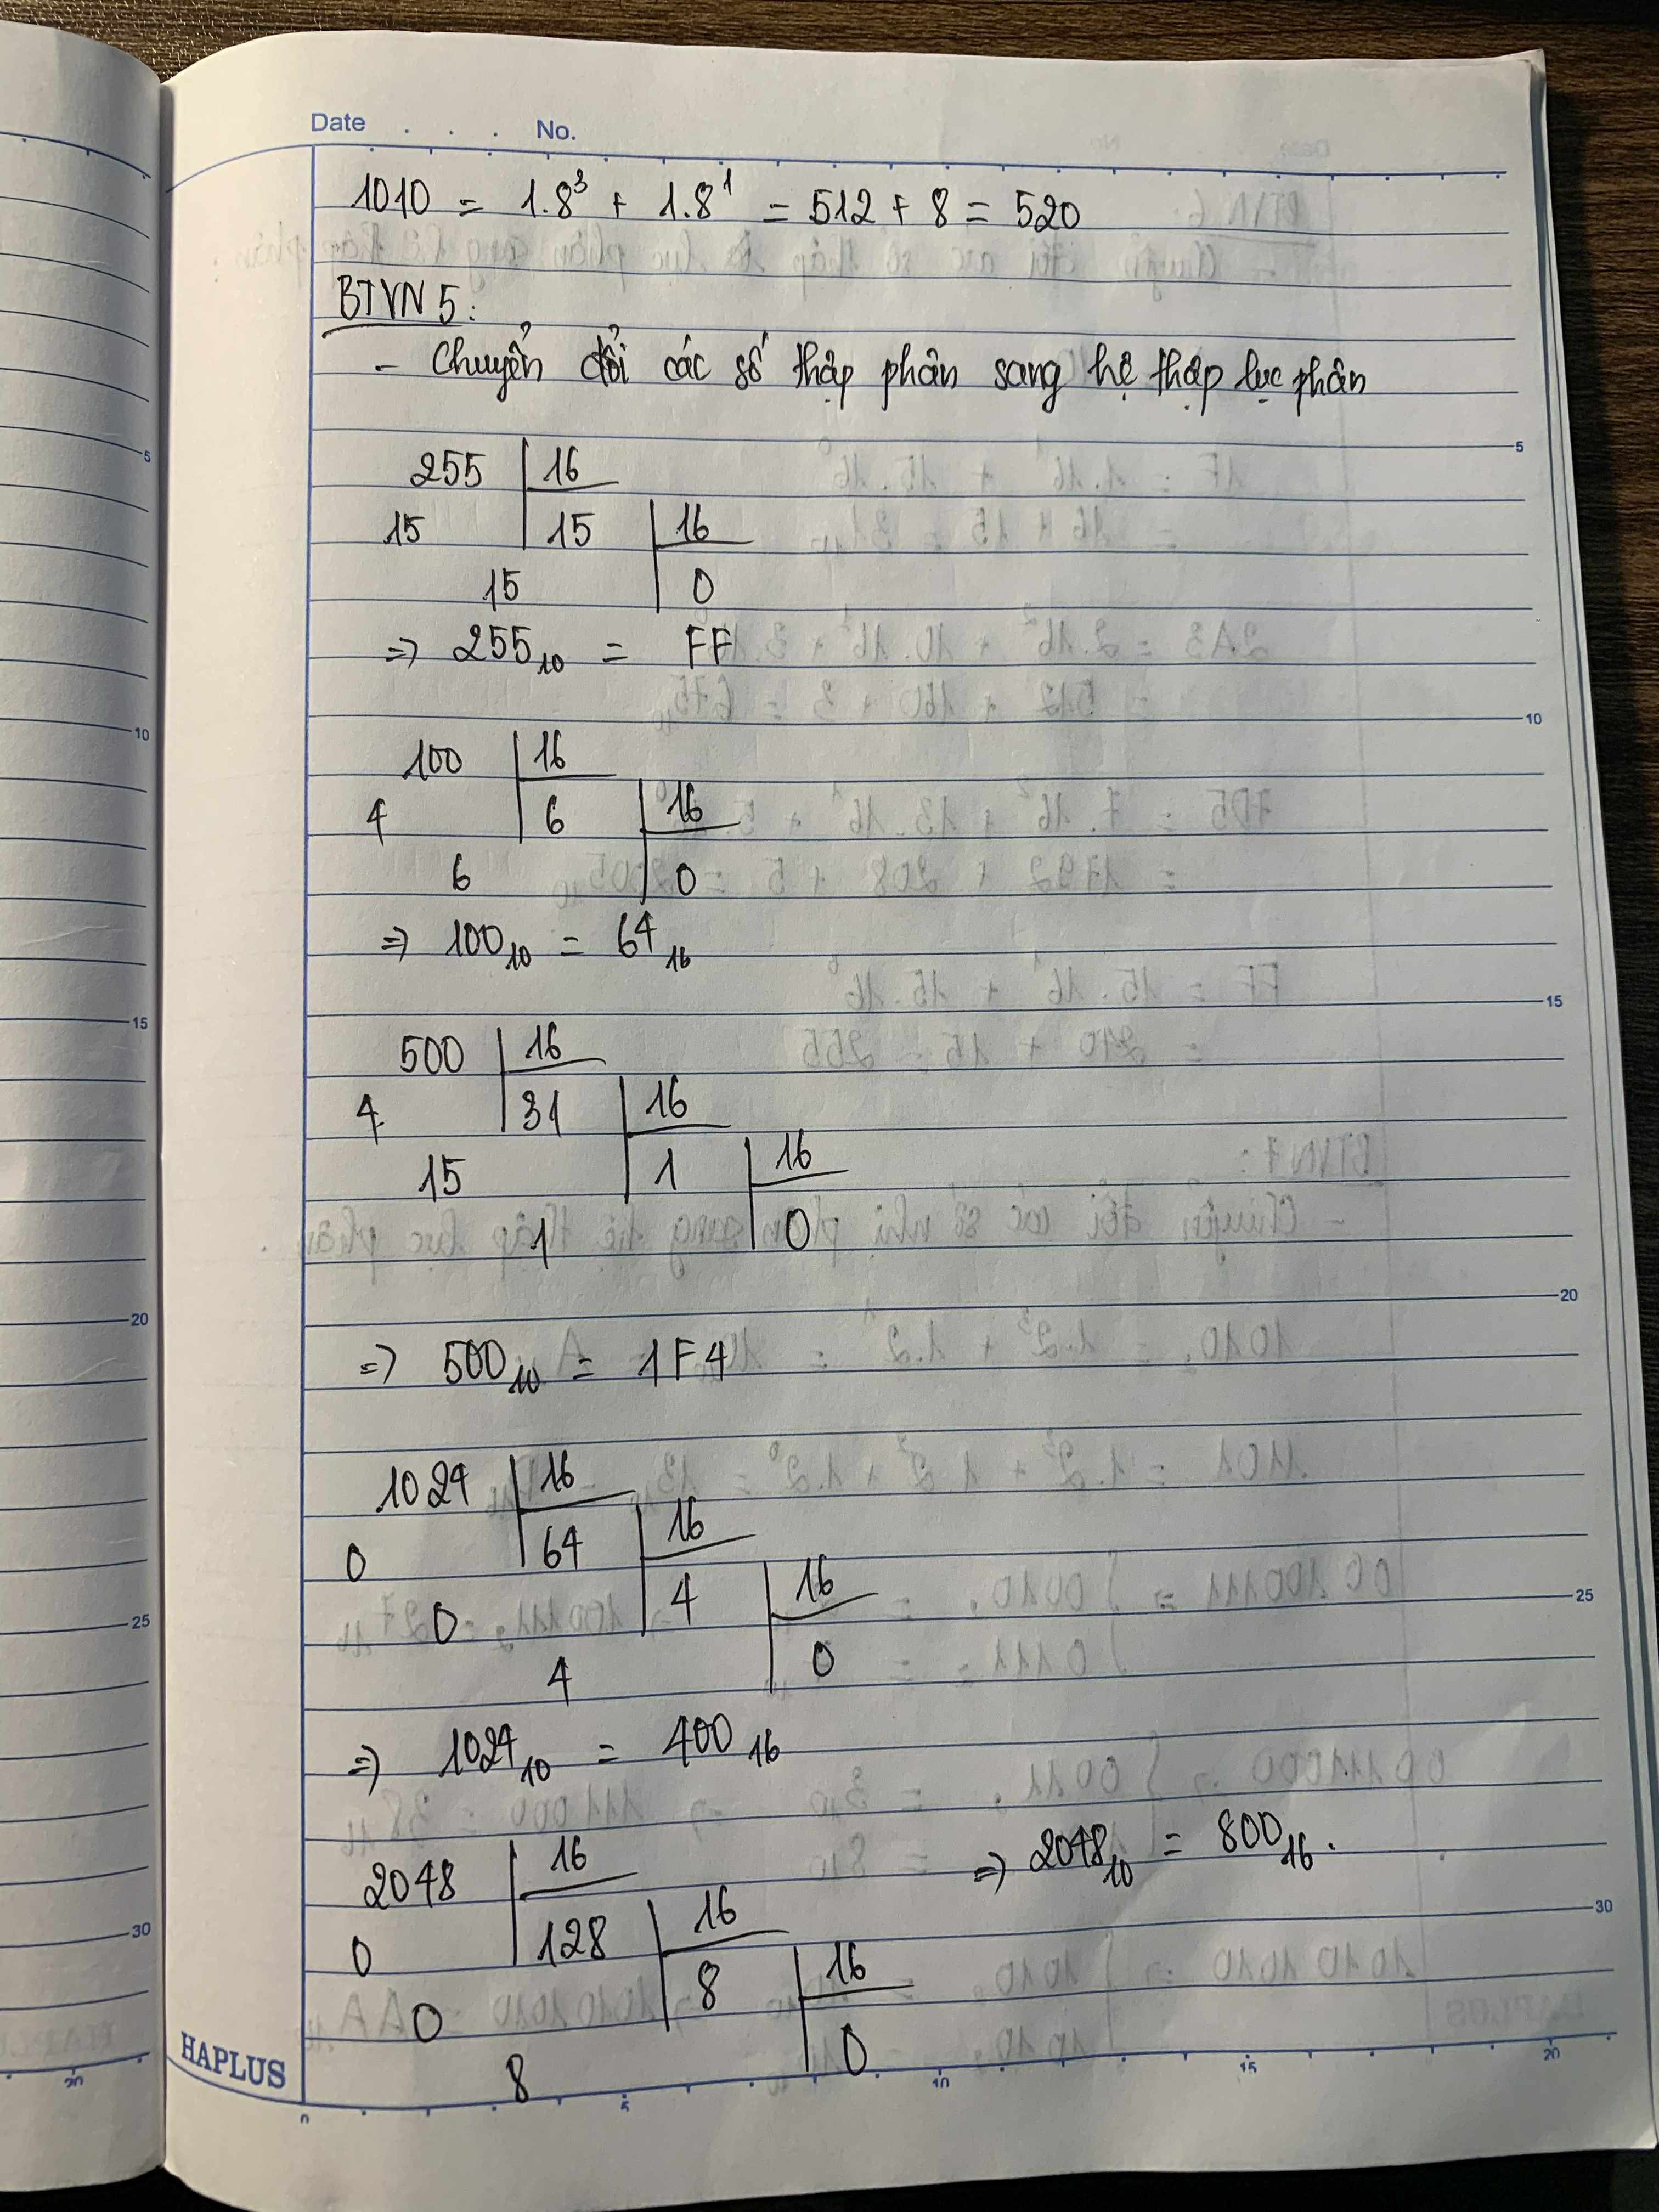 Date . . . No.
1010 = 1.8³ + 1.8¹ = 512 + 8 = 520
BTVN 5:
- Chuyển đổi các số thập phân sang hệ thập lục phân
5
255 16
15 15 16
15 0
=> 255₁₀ = FF
10
100 16
4 6 16
6 0
=> 100₁₀ = 64₁₆
15
500 16
4 31 16
15 1 16
1 0
20
=> 500₁₀ = 1F4
1024 16
0 64 16
0 4 16
25
4 0
=> 1024₁₀ = 400₁₆
2048 16 => 2048₁₀ = 800₁₆.
30
0 128 16
0 8 16
8 0
HAPLUS
0 5 10 15 20